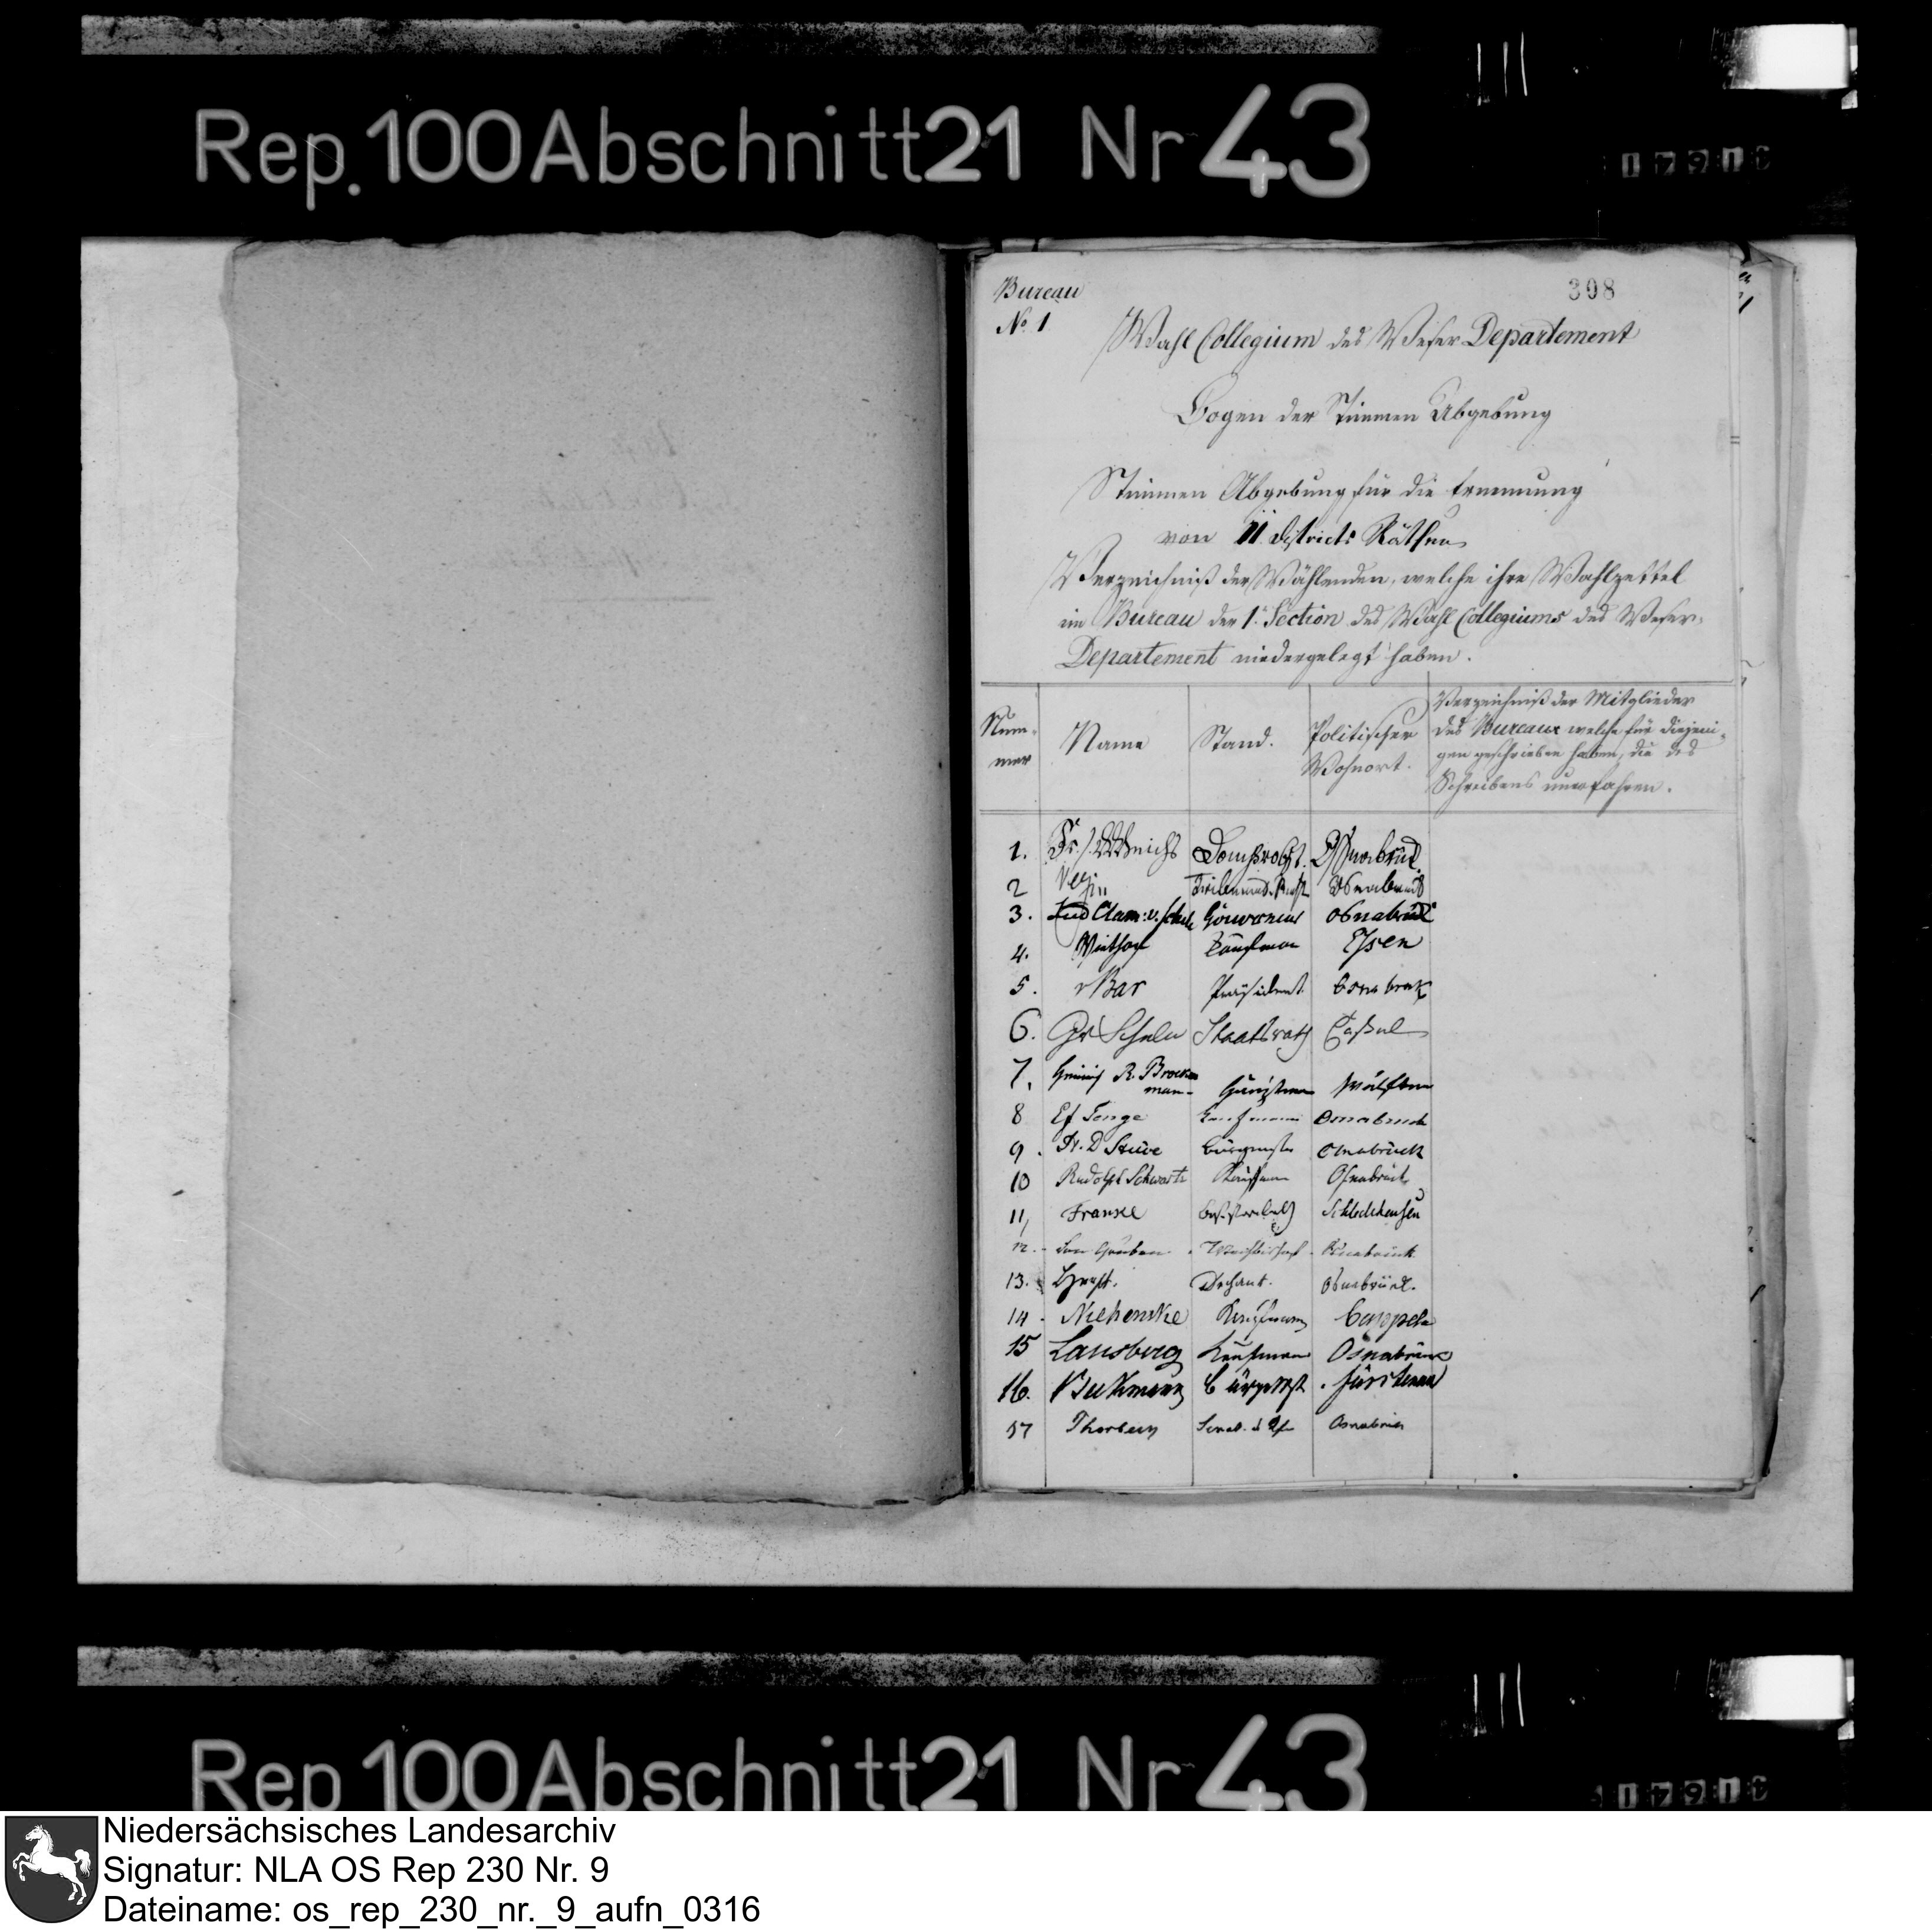 Rep. 100 Abschnitt 21 Nr 43
Bureau
398
No. 1
Wahl Collegium des Weser Departement
Bogen der Stimmen Abgebung
Stimmen Abgebung für die Ernennung
von 11 Districts Räthen
Verzeichniß der Wählenden, welche ihre Wahlzettel
im Bureau der 1. Section des Wahl Collegiums des Weser-
Departement niedergelegt haben.
Num-
mer
Name
Stand.
Politischer
Wohnort.
Verzeichniß der Mitglieder
des Bureaux welche für diejeni-
gen geschrieben haben, die des
Schreibens unerfahren.
1. Domprobst. Osnabrück
2 Osnabrück
3. Osnabrück
4. Kaufman Essen
5. vBar Präsident. Osnabrück
6. Gr Schele Staatsrath Cassel
7. R. Brockmann
8 Ef Tenge Kaufmann Osnabruck
9. Dr. D Stüve Bürgermstr Osnabrück
10 Rudolph Schwartz Kaufmann Osnabrück
11, Franke Schledehausen
12. von Gruben. Weihbischof. Osnabrück
13. Dechant. Osnabrück.
14. Niehenke Kaufmann Cappeln
15 Lansberg Kaufmann Osnabrück
16. Fürstenau
17 Osnabrück
Rep 100 Abschnitt 21 Nr 43
Niedersächsisches Landesarchiv
Signatur: NLA OS Rep 230 Nr. 9
Dateiname: os_rep_230_nr._9_aufn_0316